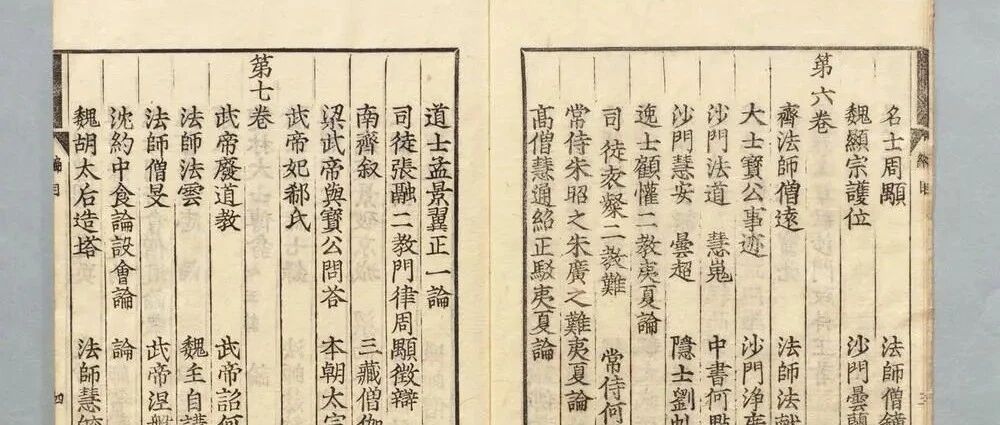 名士周顒 法師僧鐘
魏顯宗護位 沙門曇
第六卷
齊法師僧遠 法師法獻
大士寶公事迹 沙門淨
沙門法道 慧嵬 中書何點
沙門慧安 曇超 隱士劉虬
逸士顧懽二教夷夏論
司徒袁粲二教難 常侍何
常侍朱昭之朱廣之難夷夏論
高僧慧通紹正駁夷夏論
道士孟景翼正一論
司徒張融二教門律周顒徵辯
南齊叙 三藏僧伽
梁武帝與寶公問荅 本朝太宗
武帝妃郗氏
第七卷
武帝廢道教 武帝詔何
法師法雲 魏主自講
法師僧旻 武帝涅槃
沈約中食論設會論 論
魏胡太后造塔 法師慧
編目 四